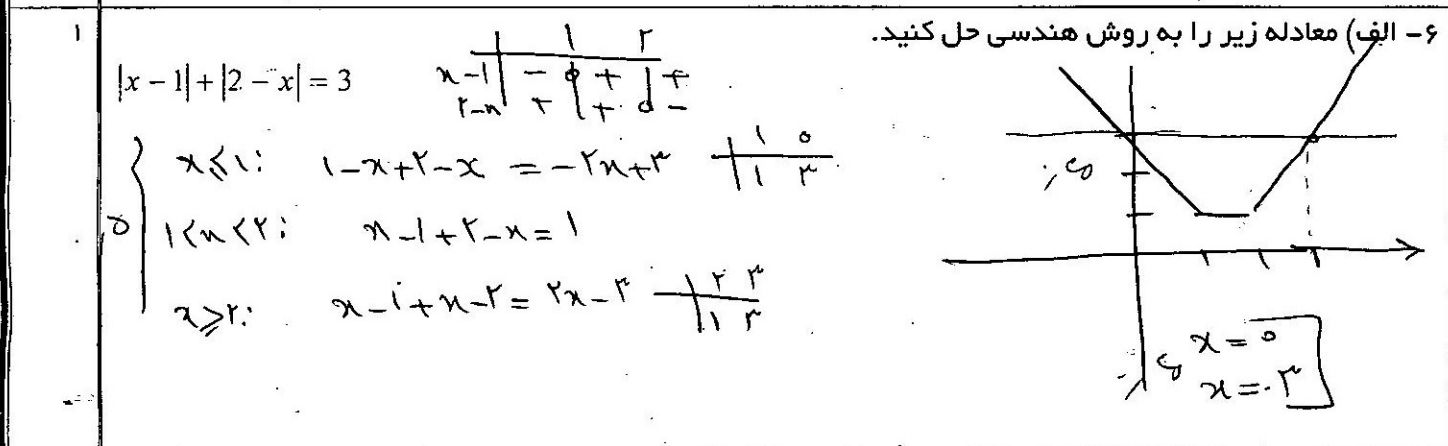 ۶- الف) معادله زیر را به روش هندسی حل کنید.
۱
|x - 1| + |2 - x| = 3
۱ ۲
x-۱ - ۰ + + 
۲-x + + ۰ -
x≤۱: ۱-x+۲-x = -۲x+۳
۱ ۰
۱ ۳
۱<x<۲: x-۱+۲-x=۱
x≥۲: x-۱+x-۲= ۲x-۳
۲ ۳
۱ ۳
x=۰
x=۳